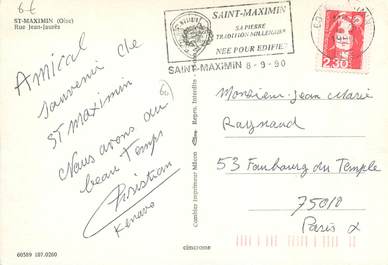 6€
ST-MAXIMIN (Oise)
Rue Jean-Jaurès
SAINT-MAXIMIN
SA PIERRE
TRADITION MILLENAIRE
NÉE POUR EDIFIER
SAINT-MAXIMIN 8-9-90
2,30
Amical
souvenir de
ST MAXIMIN
Nous avons du
beau Temps
Christian
Kenavo
Combier Imprimeur Mâcon
Monsieur Jean Marie
Raynaud
53 Faubourg du Temple
75010
Paris X
60589 107.0260
cimcrome